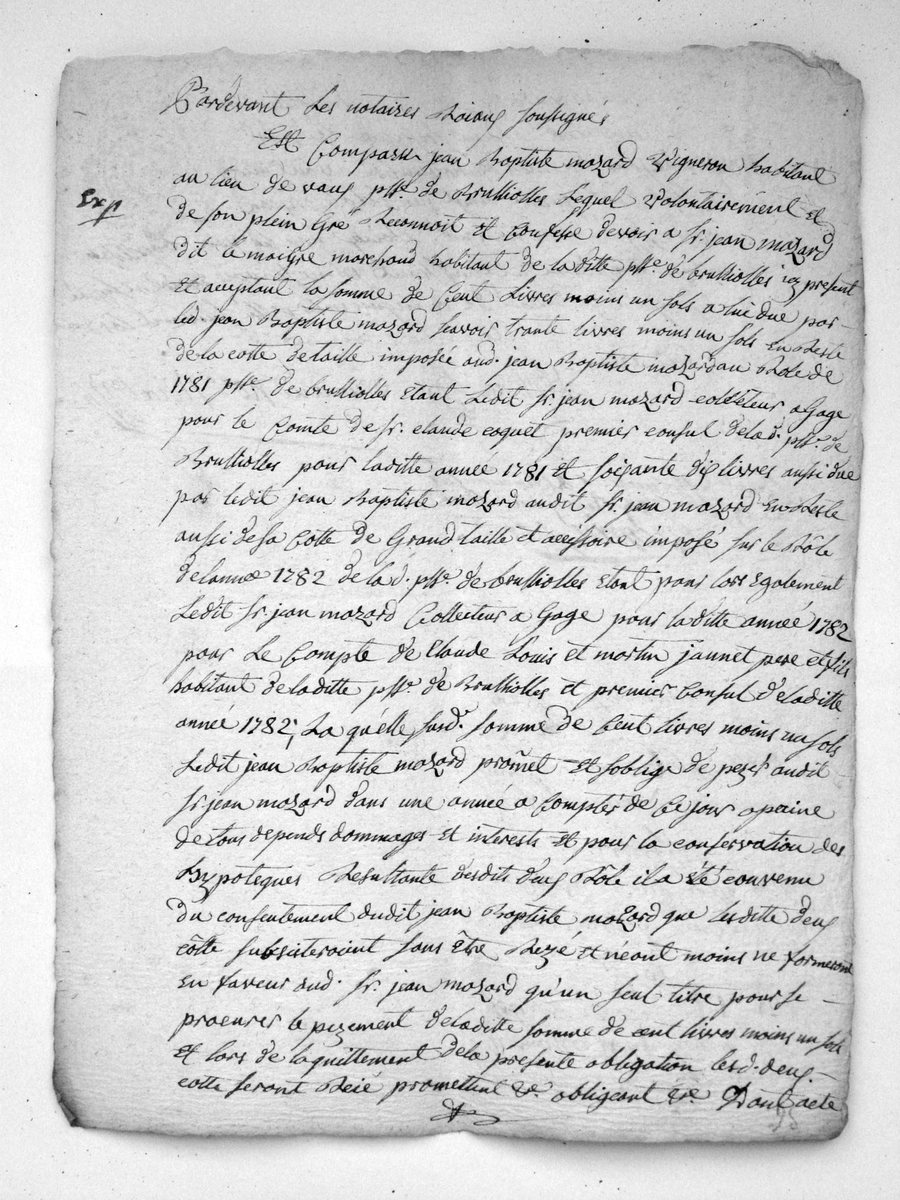 Pardevant Les notaires Roiaux soussignés
Est Comparu jean Baptiste mazard Vigneron habitant
Exp
au lieu de vaux psse. de Brulliolles Lequel volontairement et
de son plein Gré Reconnoit et confesse devoir a Sr. jean mazard
dit le maigre marchand habitant de laditte psse. de brulliolles icy present
et acceptant la somme de Cent Livres moins un sols a lui due par
led. jean Baptiste mazard scavoir trante livres moins un sols En Reste
de la cotte de taille imposée aud. jean Baptiste mazard au Role de
1781 psse. de brulliolles Etant Ledit Sr. jean mazard collecteur a Gage
pour le Comte de Sr. claude coquet premier consul delad. psse. de
Brulliolles pour laditte année 1781 et soixante dix livres aussi due
par ledit jean Baptiste mazard audit Sr. jean mazard En Reste
aussi de sa Cotte de Grand taille et accessoire imposé sur le Rôle
de lannée 1782 de lad. psse. de brulliolles Etant pour lors Egalement
Ledit Sr. jean mazard Collecteur a Gage pour laditte année 1782
pour Le Compte de Claude Louis et martin jaunet pere et fils
habitant de laditte psse. de Brulliolles et premier Consul de laditte
année 1782, La quelle susd. somme de Cent Livres moins un sols
Ledit jean Baptiste mazard promet et soblige de peyer audit
Sr. jean mazard dans une année a Compter de Ce jour a paine
de tous depends dommages et interests et pour la conservation des
hypoteques Resultante desdits deux Rôle il a été convenu
du consentement dudit jean Baptiste mazard que lesditte deux
côtte subsisteroint sans être Rezé et néant moins ne formeront
En faveur aud. Sr. jean mazard qu'un seul titre pour se
procurer le pezement de laditte somme de cent livres moins un sols
et lors de laquittement de la presente obligation lesd. deux
cotte seront Reié promettent &c. obligeant &c. Dont acte